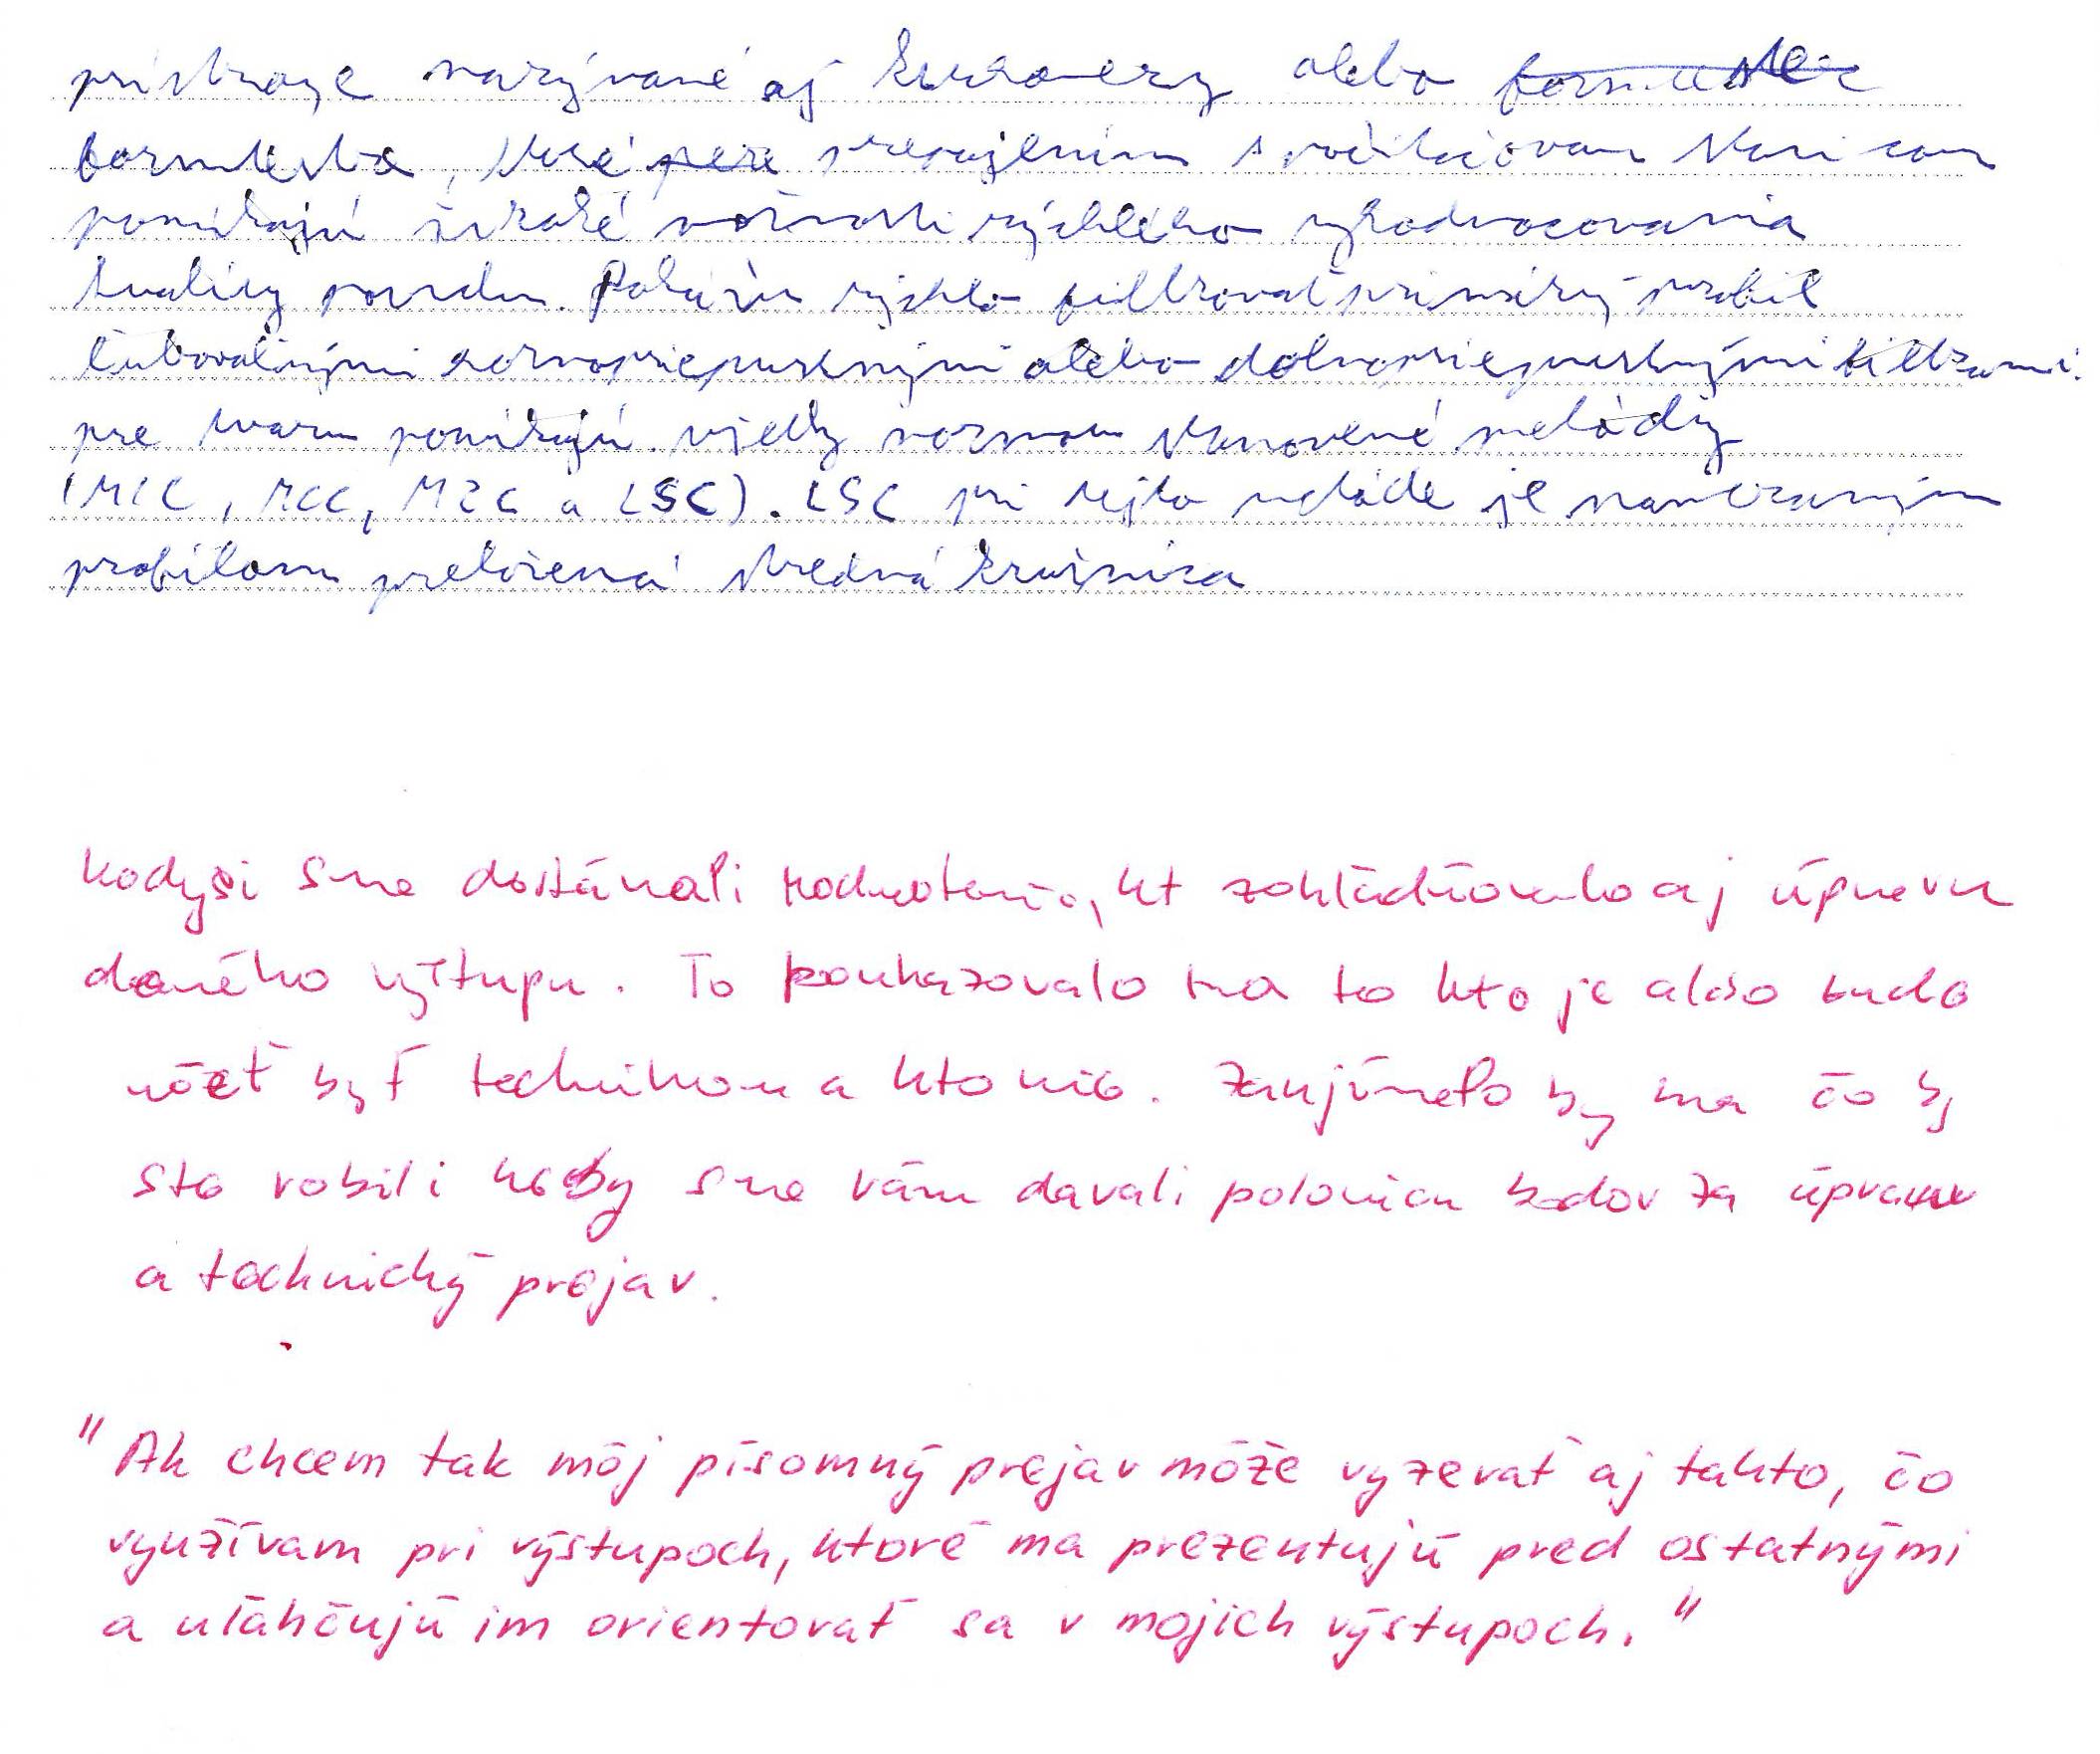 prístroje nazývané aj kruhomery alebo
formtestre, ktoré pre prepojením s počítačovou stanicou
ponúkajú široké možnosti rýchleho vyhodnocovania
kvality povrchu. Dokážu rýchlo filtrovať primárny profil
ľubovoľnými hornopriepustnými alebo dolnopriepustnými filtrami.
pre tvaru ponúkajú všetky normou stanovené metódy
(MIC, MCC, MZC a LSC). LSC pri tejto metóde je nameraným
profilom preložená stredná kružnica
Kedysi sme dostávali hodnotenie, kt zohľadňovalo aj úpravu
daného výstupu. To poukazovalo na to kto je alebo bude
môcť byť technikom a kto nie. Zaujímalo by ma čo by
ste robili keby sme vám dávali polovicu bodov za úpravu
a technický prejav.
"Ak chcem tak môj písomný prejav môže vyzerať aj takto, čo
využívam pri výstupoch, ktoré ma prezentujú pred ostatnými
a uľahčujú im orientovať sa v mojich výstupoch."